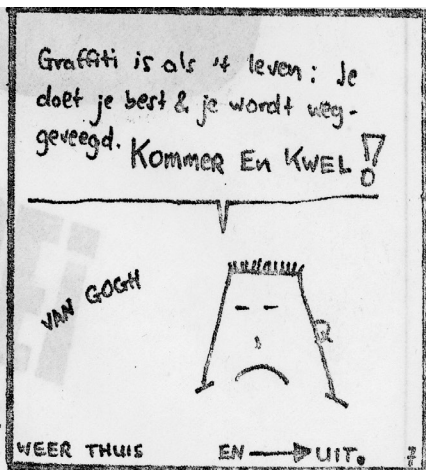 Graffiti is als 't leven: Je
doet je best & je wordt weg-
geveegd. KOMMER En KWEL!
VAN GOGH
WEER THUIS EN → UIT. 7